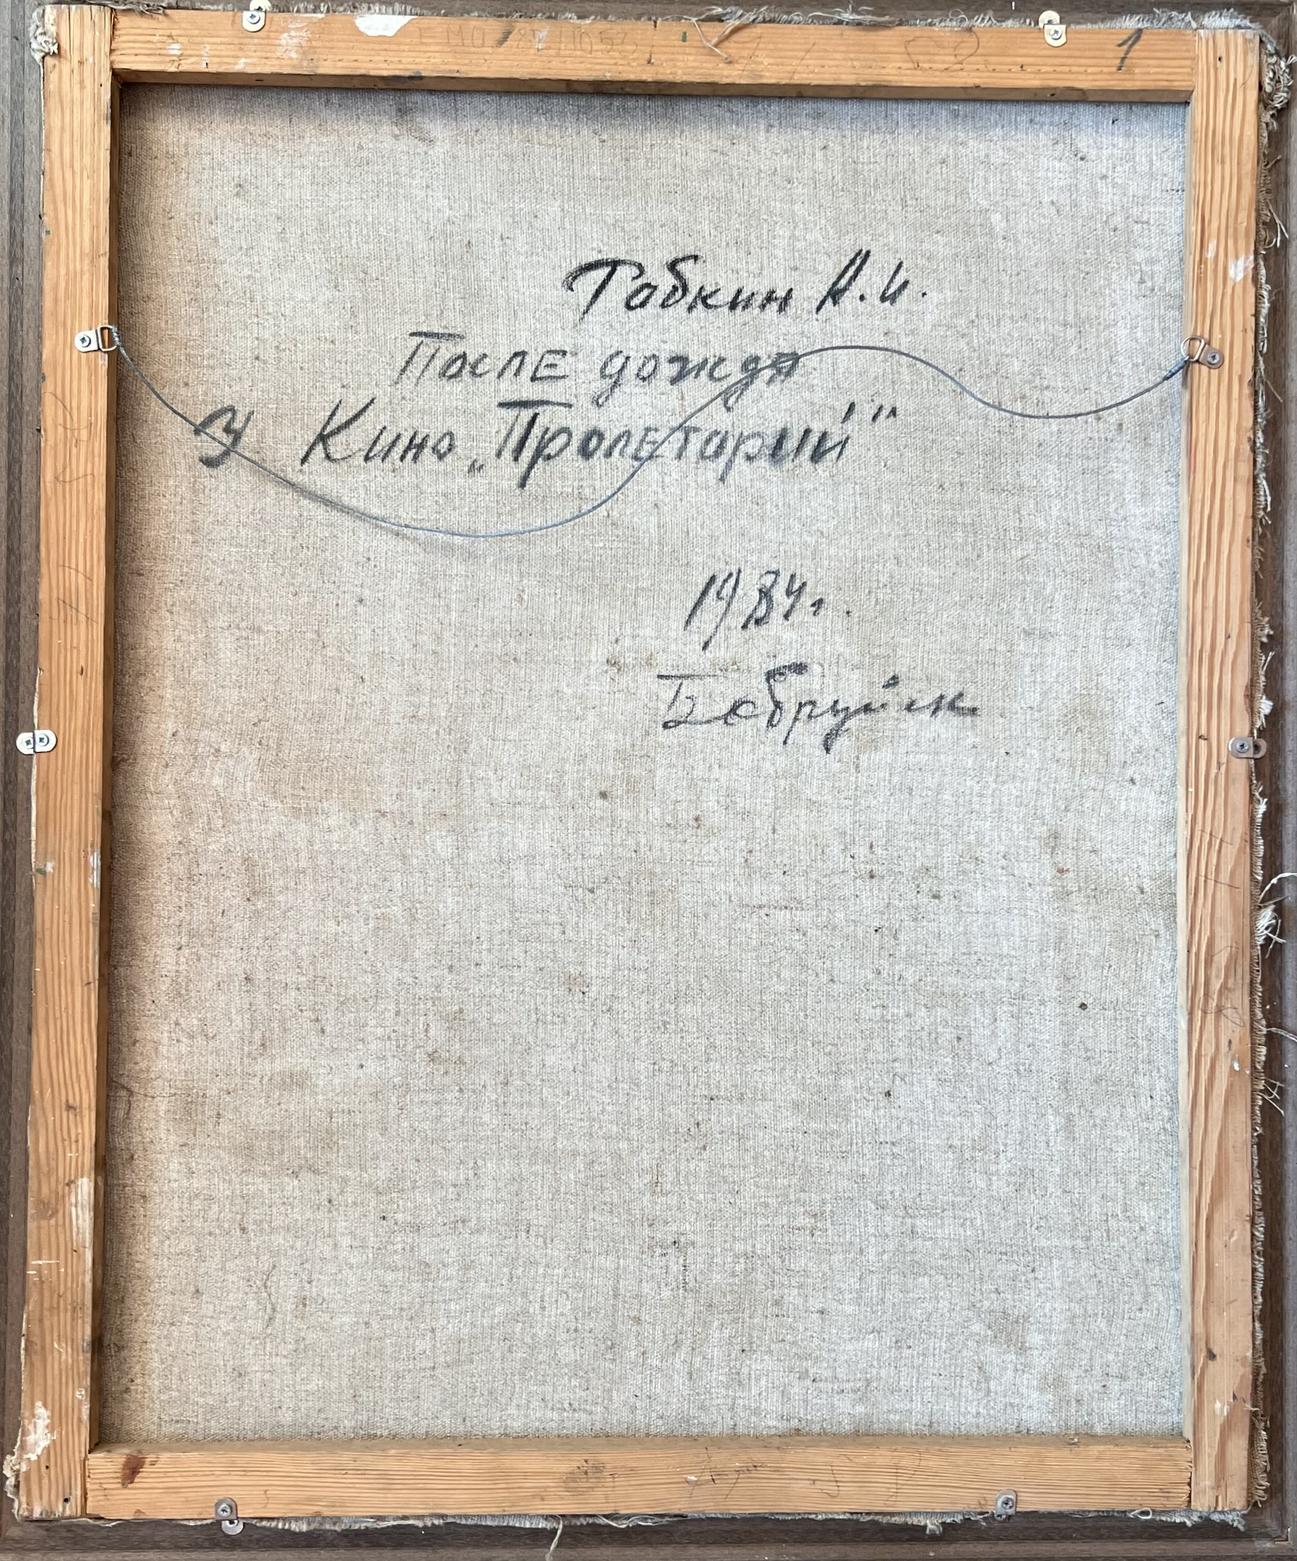 1
Рабкин А.И.
После дождя
У Кино „Пролетарий"
1984г.
Бобруйск